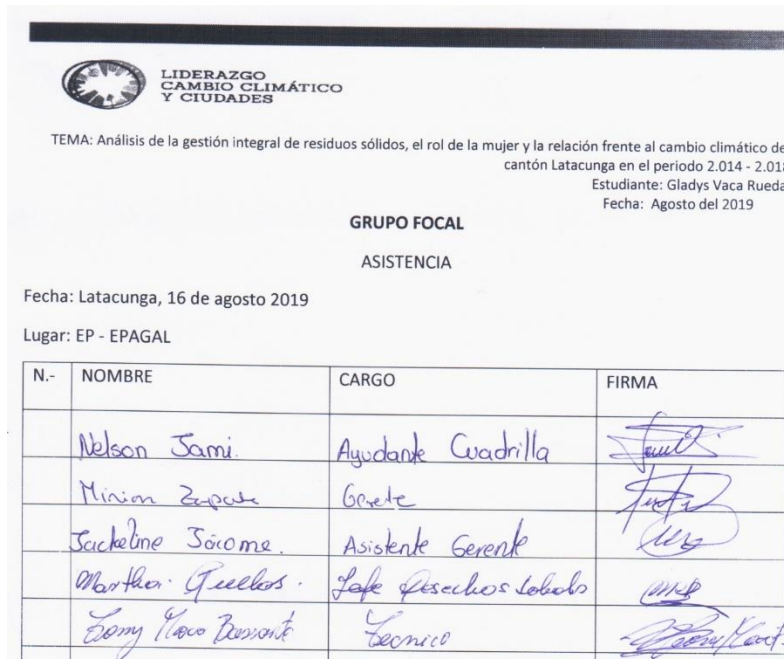 LIDERAZGO
CAMBIO CLIMÁTICO
Y CIUDADES
TEMA: Análisis de la gestión integral de residuos sólidos, el rol de la mujer y la relación frente al cambio climático de
cantón Latacunga en el periodo 2.014 - 2.018
Estudiante: Gladys Vaca Rueda
Fecha: Agosto del 2019
GRUPO FOCAL
ASISTENCIA
Fecha: Latacunga, 16 de agosto 2019
Lugar: EP - EPAGAL
N.- NOMBRE CARGO FIRMA
Nelson Jami. Ayudante Cuadrilla
Mirian Zapata Gerete
Jackeline Jácome. Asistente Gerente
Martha. Jefe Desechos
Tecnico